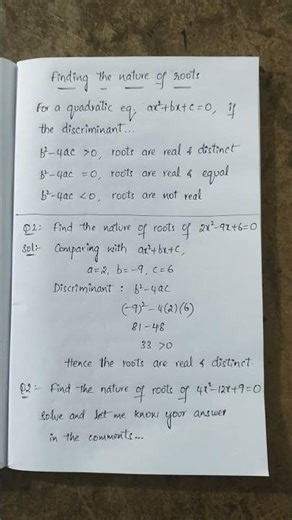 Finding the nature of roots
For a quadratic eq, ax²+bx+c=0, if
the discriminant...
b²-4ac >0, roots are real & distinct
b²-4ac =0, roots are real & equal
b²-4ac <0, roots are not real
Q1:- Find the nature of roots of 2x²-9x+6=0
Sol:- Comparing with ax²+bx+c,
a=2, b=-9, c=6
Discriminant : b²-4ac
(-9)²-4(2)(6)
81-48
33 >0
Hence the roots are real & distinct.
Q2:- Find the nature of roots of 4x²-12x+9=0
solve and let me know your answer
in the comments...